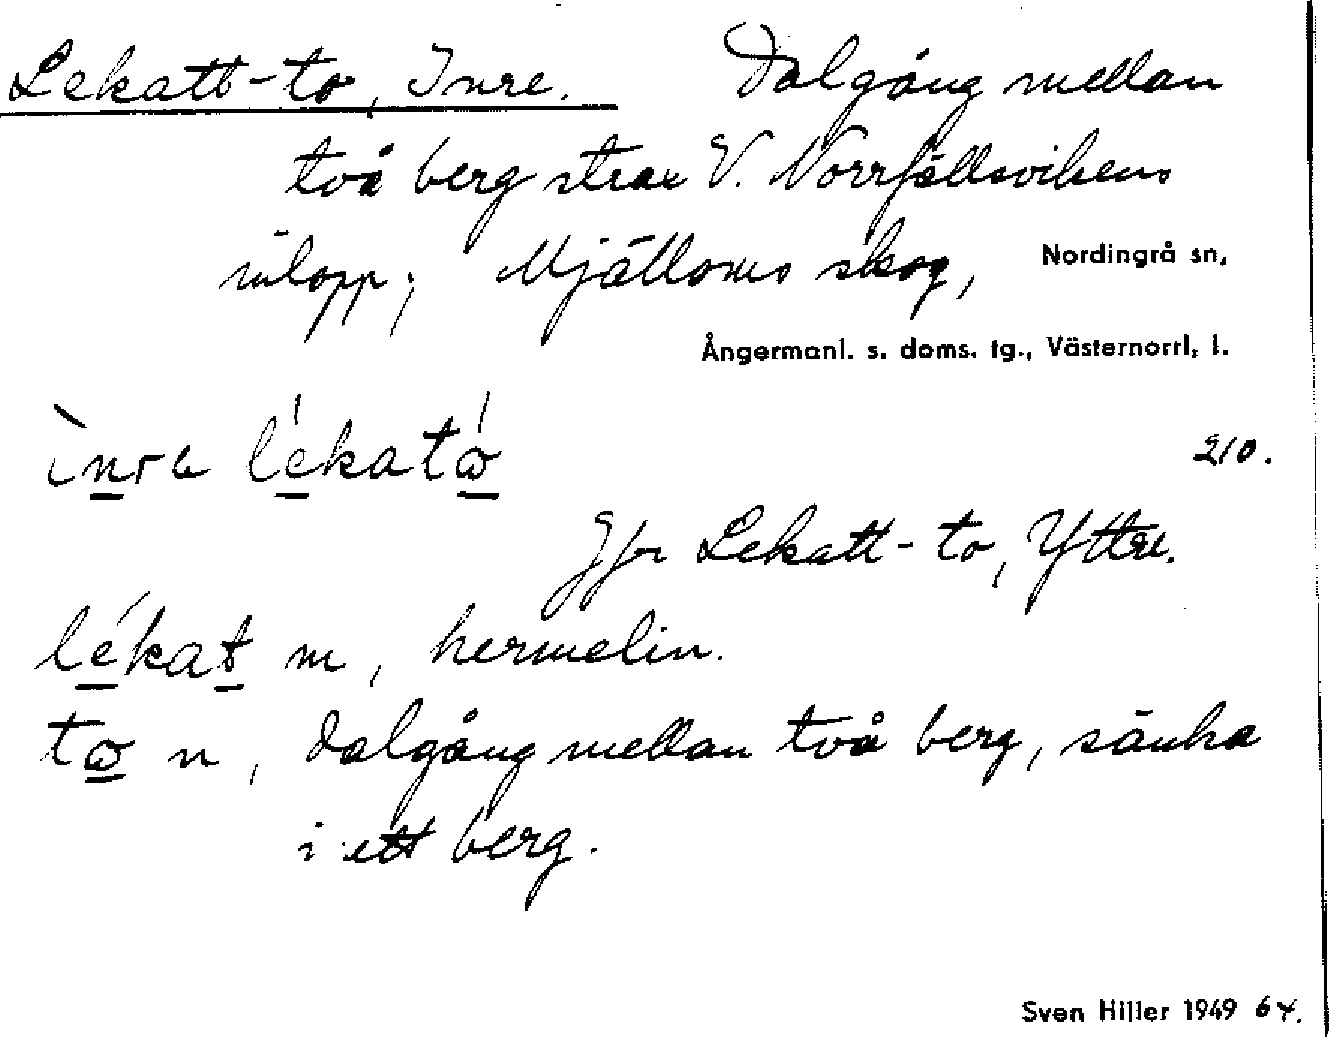 Lekatt-to, Inre. Dalgång mellan
två berg strax V. Norrfällsvikens
inlopp; Mjälloms skog, Nordingrå sn,
Ångermanl. s. doms. tg., Västernorrl. l.
ìnra lékató 210.
Jfr Lekatt-to, Yttre.
lékat m, hermelin.
to n, dalgång mellan två berg, sänka
i ett berg.
Sven Hiller 1949 64.